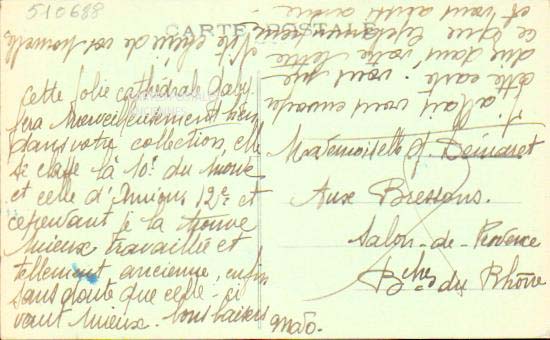 510688
CARTE POSTALE
Cette jolie cathédrale Gaby
fera merveilleusement bien
dans votre collection, elle
se classe la 10e du monde
et celle d'Amiens 12e et
cependant je la trouve
mieux travaillée et
tellement ancienne, enfin
sans doute que celle-ci
vaut mieux. Bons baisers
Mado.
Mademoiselle J. Demaret
Aux Bressons.
Salon-de-Provence
Bches du Rhône
J'allais vous envoyer
cette carte vous me
dans votre lettre
ce que
et vous aussi
de vos nouvelles